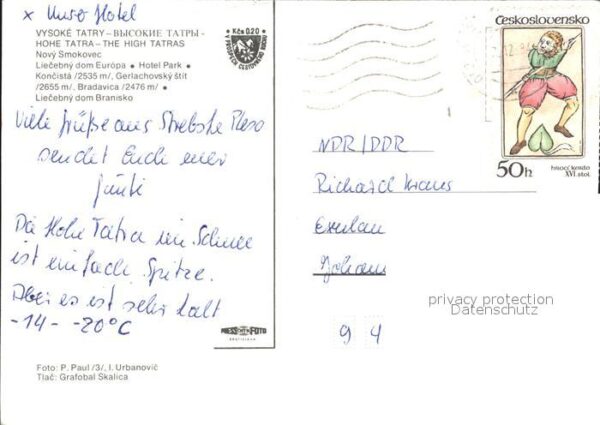 x Unser Hotel
VYSOKÉ TATRY – ВЫСОКИЕ ТАТРЫ –
HOHE TATRA – THE HIGH TATRAS
Nový Smokovec
Liečebný dom Európa • Hotel Park •
Končistá /2535 m/, Gerlachovský štít
/2655 m/, Bradavica /2476 m/ •
Liečebný dom Branisko
Kčs 0,20
Viele Grüße aus Strbske Pleso
sendet Euch
Die Hohe Tatra im Schnee
ist einfach Spitze.
Aber es ist sehr kalt
-14 - -20°C
PRESSFOTO
BRATISLAVA
Foto: P. Paul /3/, I. Urbanovič
Tlač: Grafobal Skalica
Československo
50h
XVI. stol.
NDR/DDR
Richard Kraus
privacy protection
Datenschutz
9 4